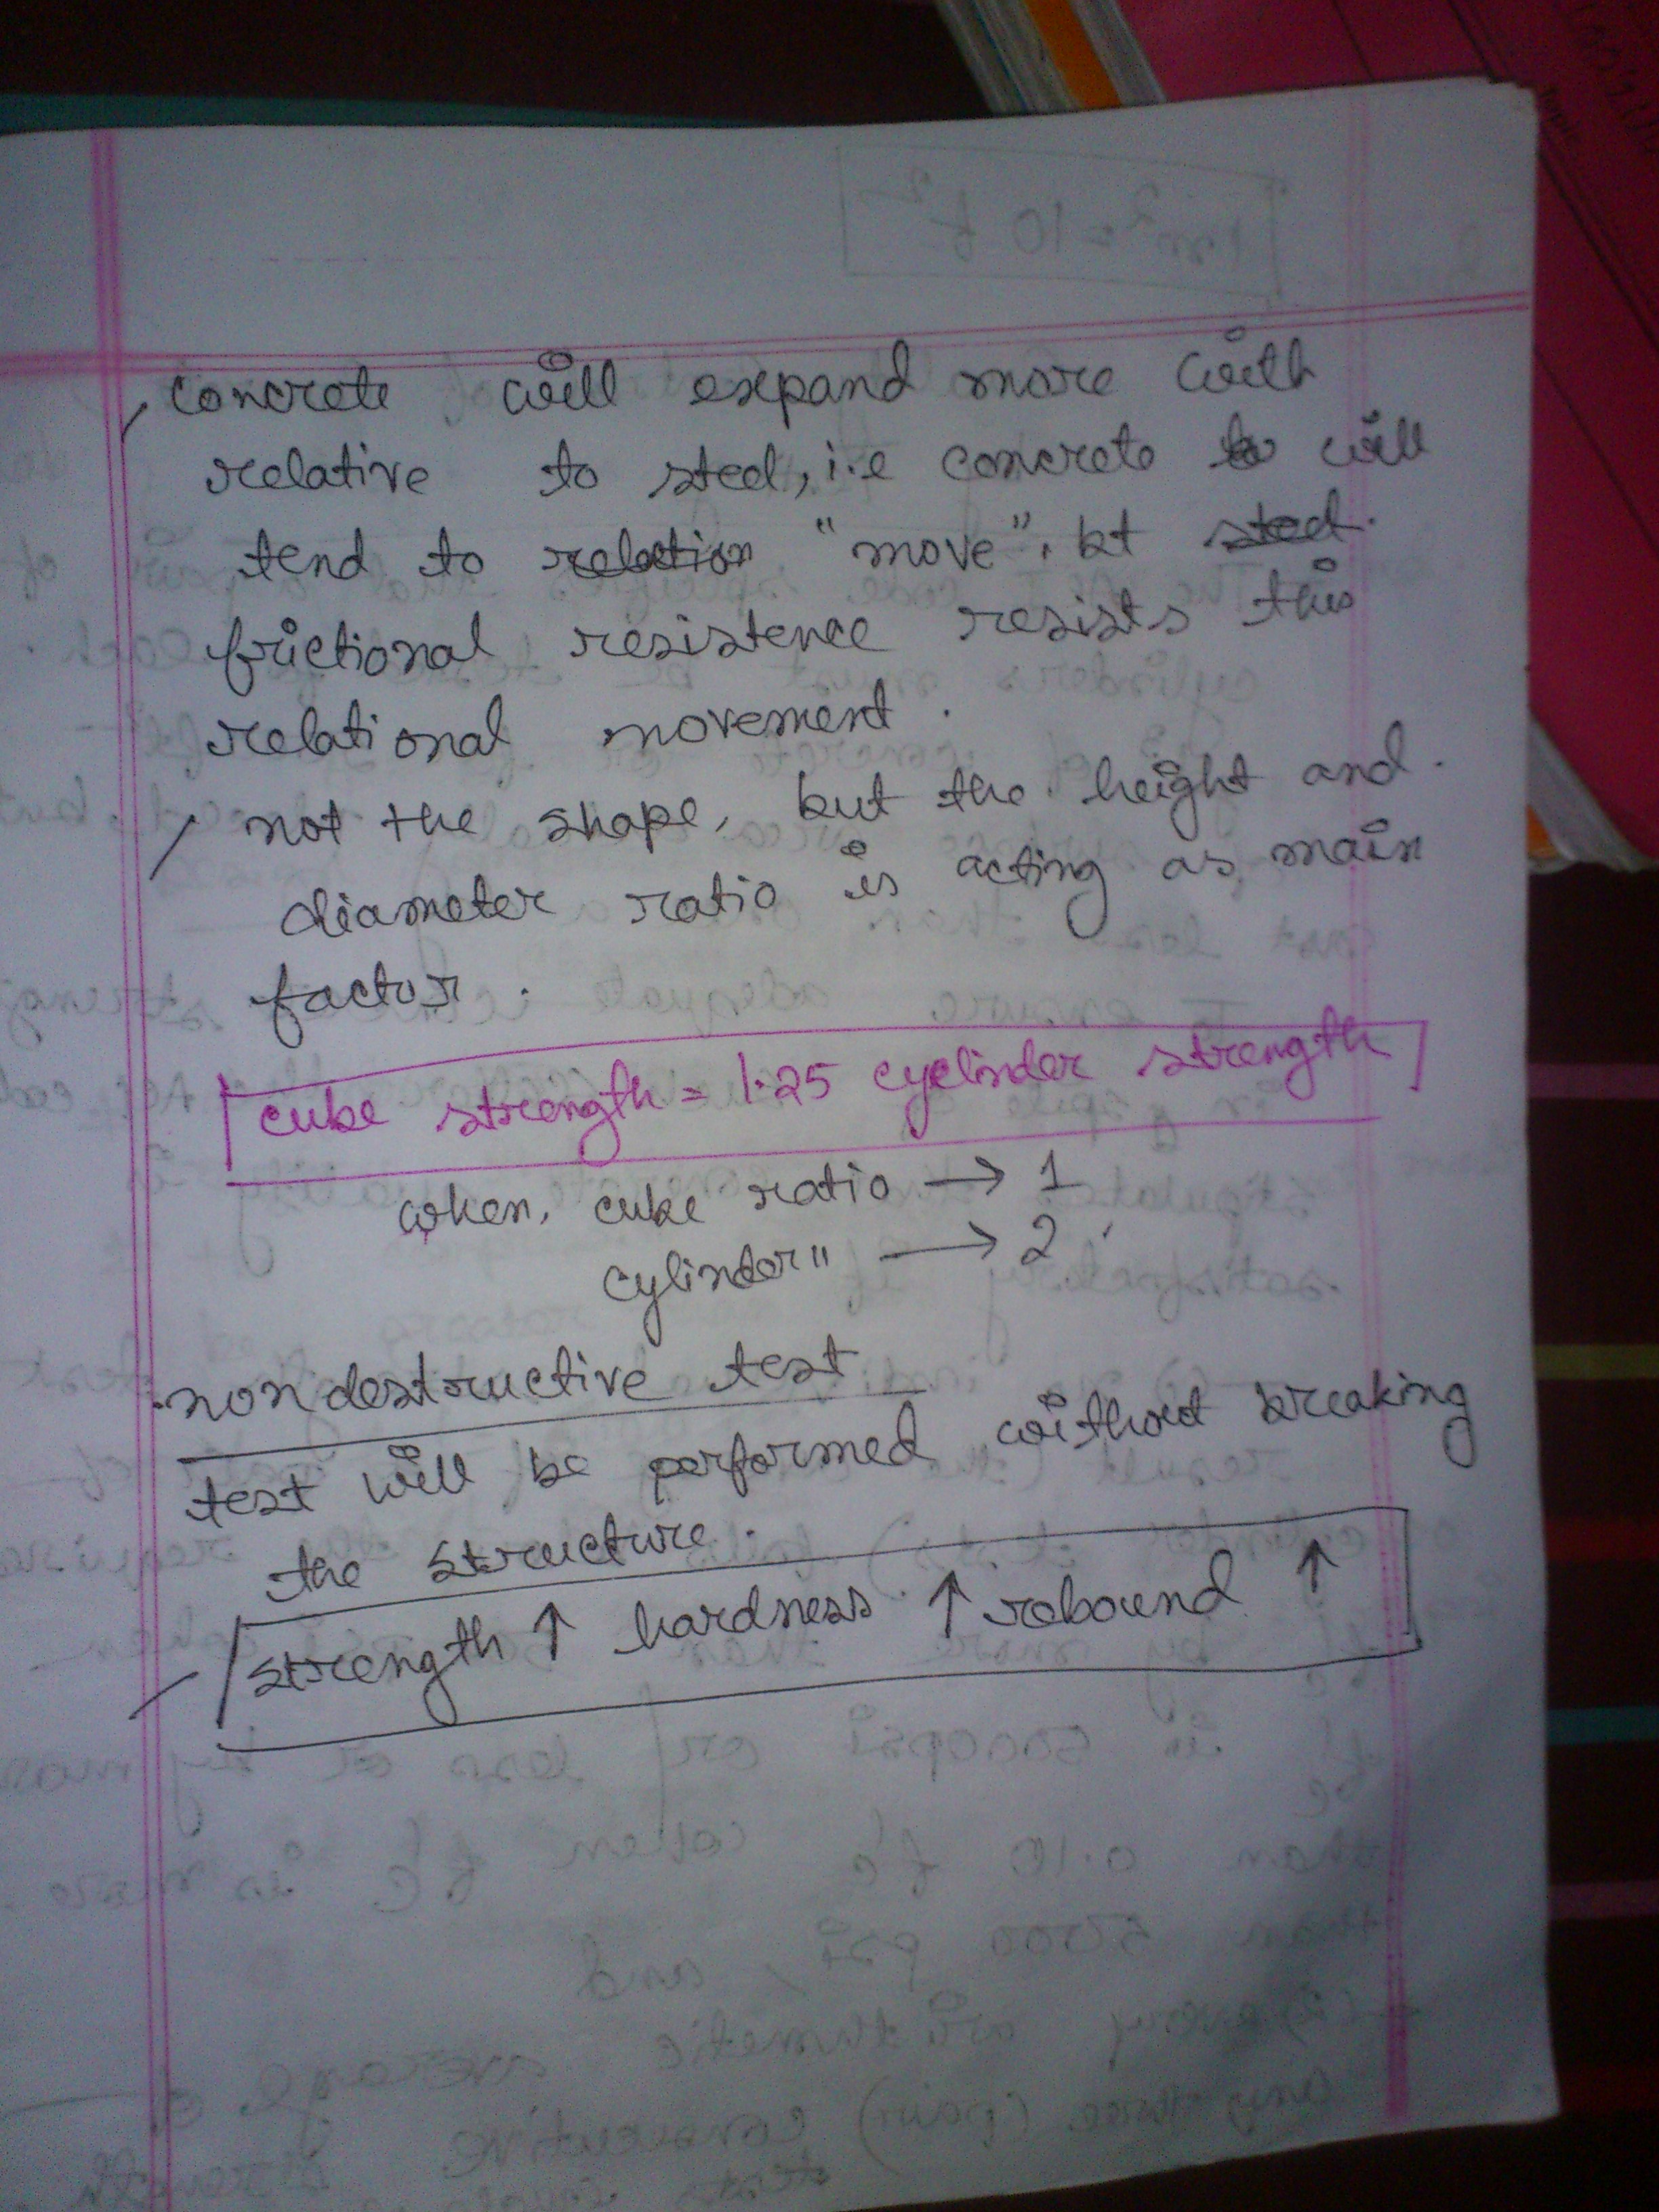 concrete will expand more with
relative to steel, i.e concrete to will
tend to relation "move", bt steel.
frictional resistence resists this
relational movement.
not the shape, but the height and
diameter ratio is acting as main
factor.
cube strength = 1.25 cyclinder strength
when, cube ratio → 1
cylinder " → 2
nondestructive test
test will be performed without breaking
the structure.
strength ↑ hardness ↑ rebound ↑